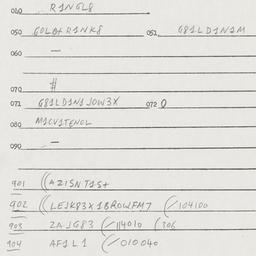 040 R1NGL8
050 GOLD+R1NK8 051 G81LD1N1M
060 —
070 #
071 G81LD1N1JOW3X 072 0
080 M1CV1TENOL
090 —
901 ((AZ15NT15+
902 ((LEJK83X1BROWFM7 (/104100
903 ZAJG83 (/114010 (206
904 AF1L1 (/010040